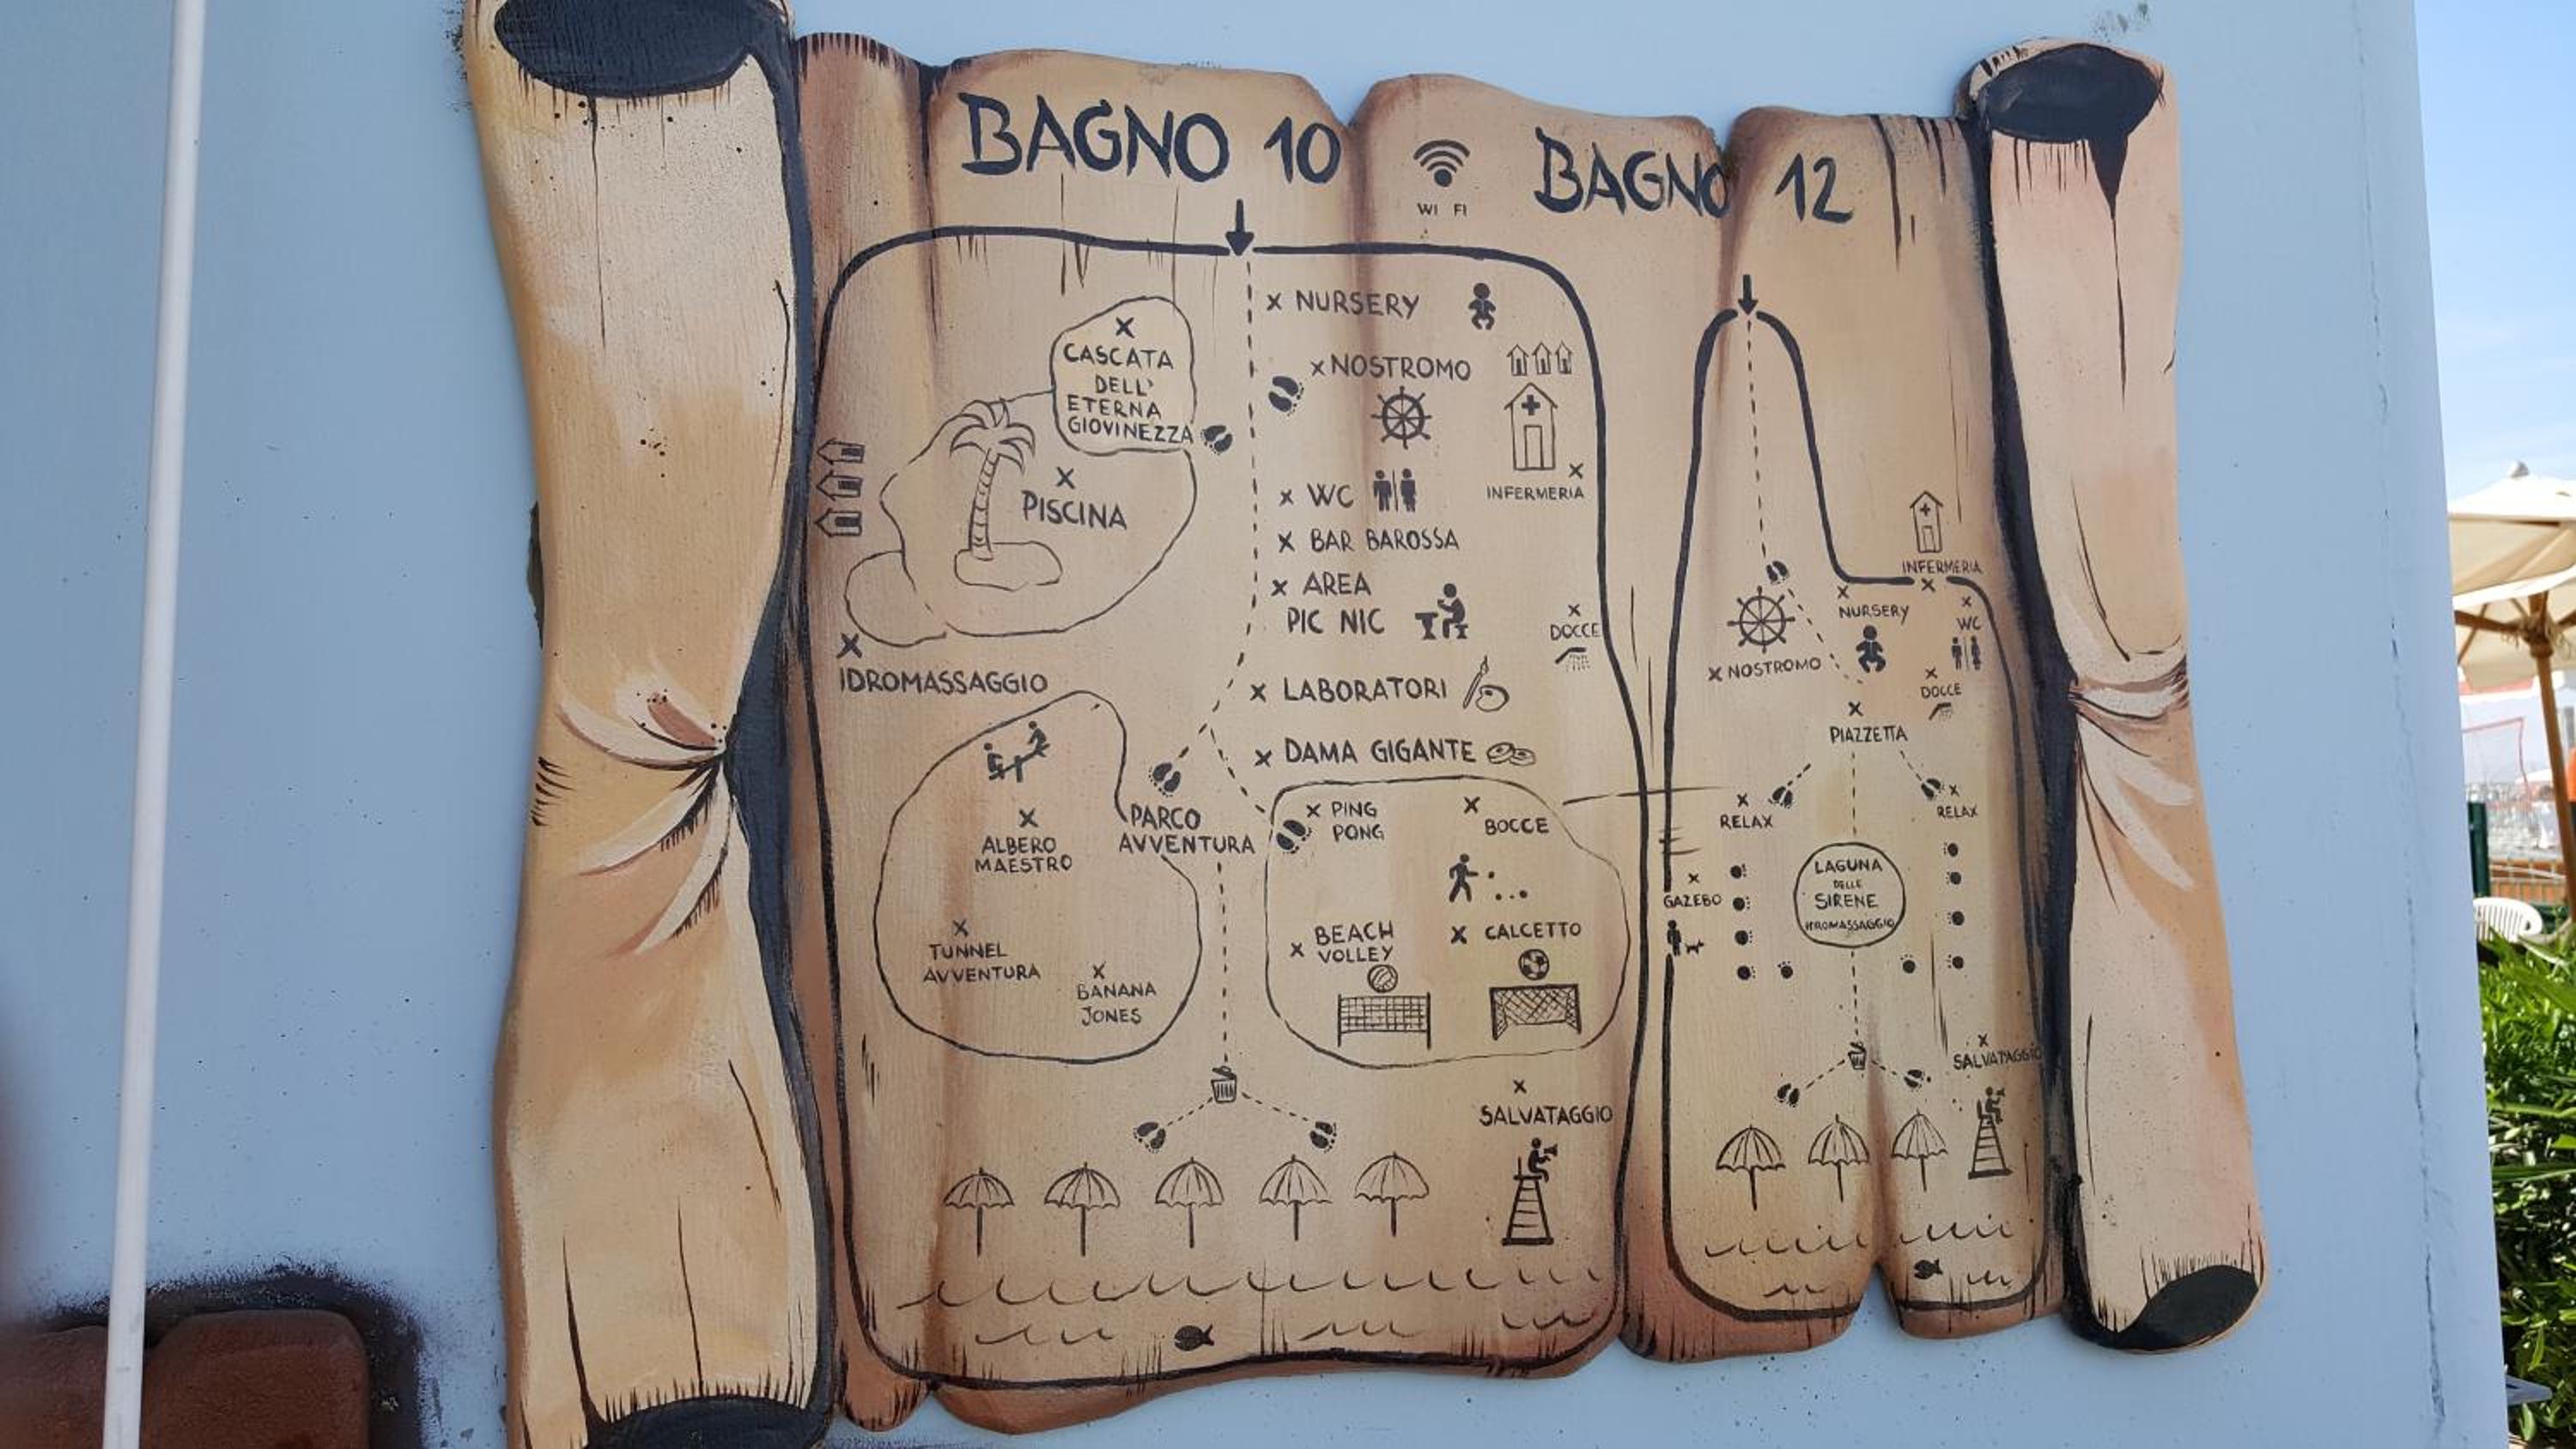 BAGNO 10
WI FI
BAGNO 12
X NURSERY
X NOSTROMO
X
CASCATA
DELL'
ETERNA
GIOVINEZZA
X
PISCINA
X
INFERMERIA
X WC
X BAR BAROSSA
X AREA
PIC NIC
X
DOCCE
X
IDROMASSAGGIO
X LABORATORI
X DAMA GIGANTE
PARCO
AVVENTURA
X
ALBERO
MAESTRO
X
TUNNEL
AVVENTURA
X
BANANA
JONES
X PING
PONG
X
BOCCE
X BEACH
VOLLEY
X CALCETTO
X
SALVATAGGIO
INFERMERIA
X
X
NURSERY
X
WC
X NOSTROMO
X
DOCCE
X
PIAZZETTA
X
RELAX
X
RELAX
X
GAZEBO
LAGUNA
DELLE
SIRENE
IDROMASSAGGIO
X
SALVATAGGIO